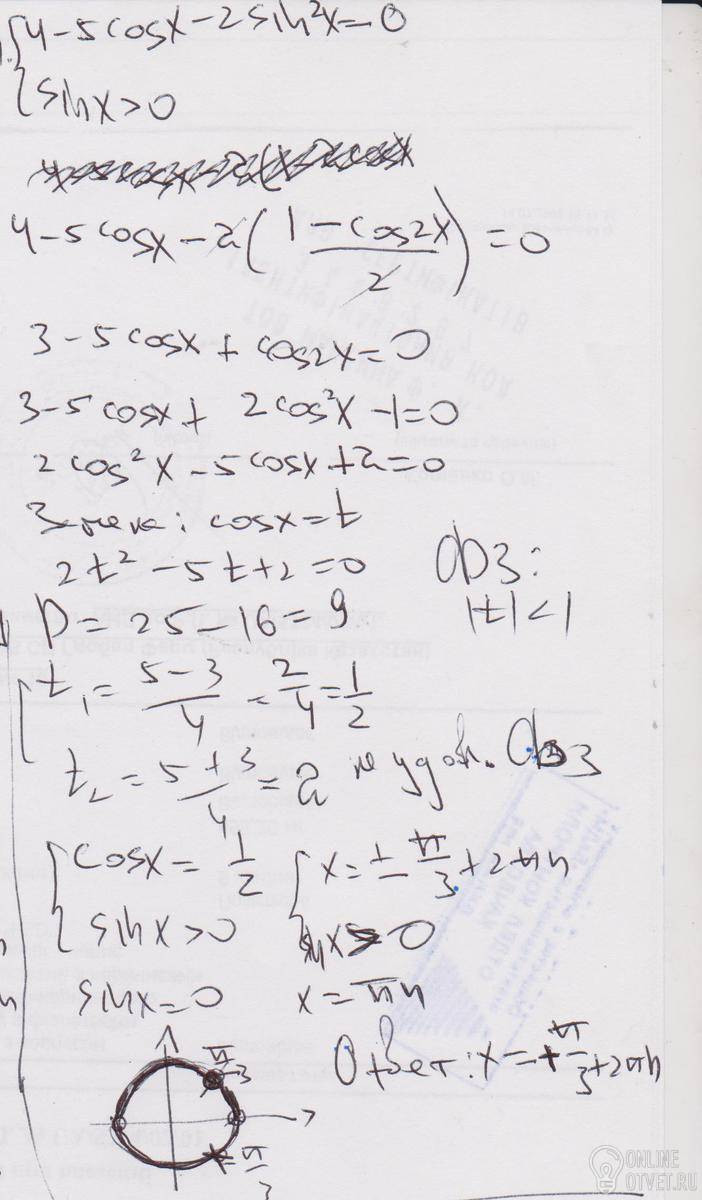 4-5cosx-2sin²x=0
sinx>0
4-5cosx-2(1-cos2x/2)=0
3-5cosx+cos2x=0
3-5cosx+2cos²x-1=0
2cos²x-5cosx+2=0
Замена: cosx=t
2t²-5t+2=0
ОДЗ:
|t|<1
D=25-16=9
t₁=5-3/4=2/4=1/2
t₂=5+3/4=2 не удов. ОДЗ
cosx=1/2
x=±π/3+2πn
sinx>0
sinx>0
sinx=0
x=πn
π/3
-π/3
Ответ: x=+π/3+2πn
ONLINE
OTVET.RU